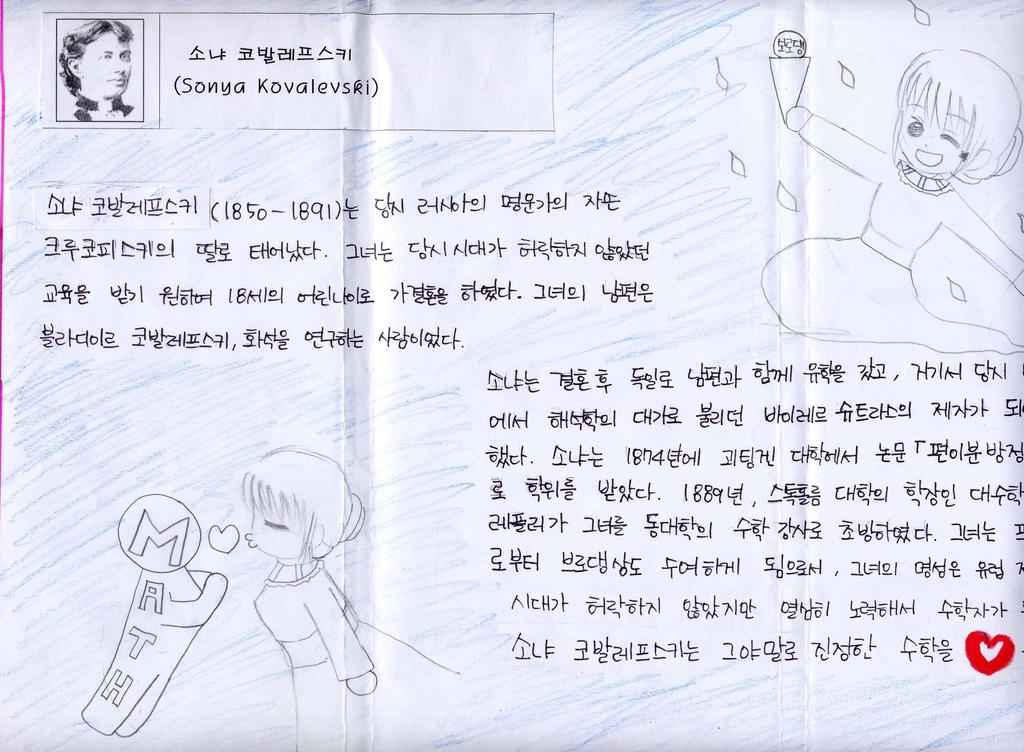 소냐 코발레프스키
(Sonya Kovalevski)
보로댕
소냐 코발레프스키 (1850-1891)는 당시 러시아의 명문가의 자손
크루코피스키의 딸로 태어났다. 그녀는 당시 시대가 허락하지 않았던
교육을 받기 원하여 18세의 어린나이로 가결혼을 하였다. 그녀의 남편은
블라디미르 코발레프스키, 화석을 연구하는 사람이었다.
소냐는 결혼 후 독일로 남편과 함께 유학을 갔고, 거기서 당시
에서 해석학의 대가로 불리던 바이레르 슈트라스의 제자가
했다. 소냐는 1874년에 괴팅겐 대학에서 논문 「편미분방정
로 학위를 받았다. 1889년, 스톡홀름 대학의 학장인 대수학
레플러가 그녀를 동대학의 수학 강사로 초빙하였다. 그녀는
로부터 브로댕상도 수여하게 됨으로서, 그녀의 명성은 유럽
시대가 허락하지 않았지만 열심히 노력해서 수학자가
소냐 코발레프스키는 그야말로 진정한 수학을
M
A
T
H